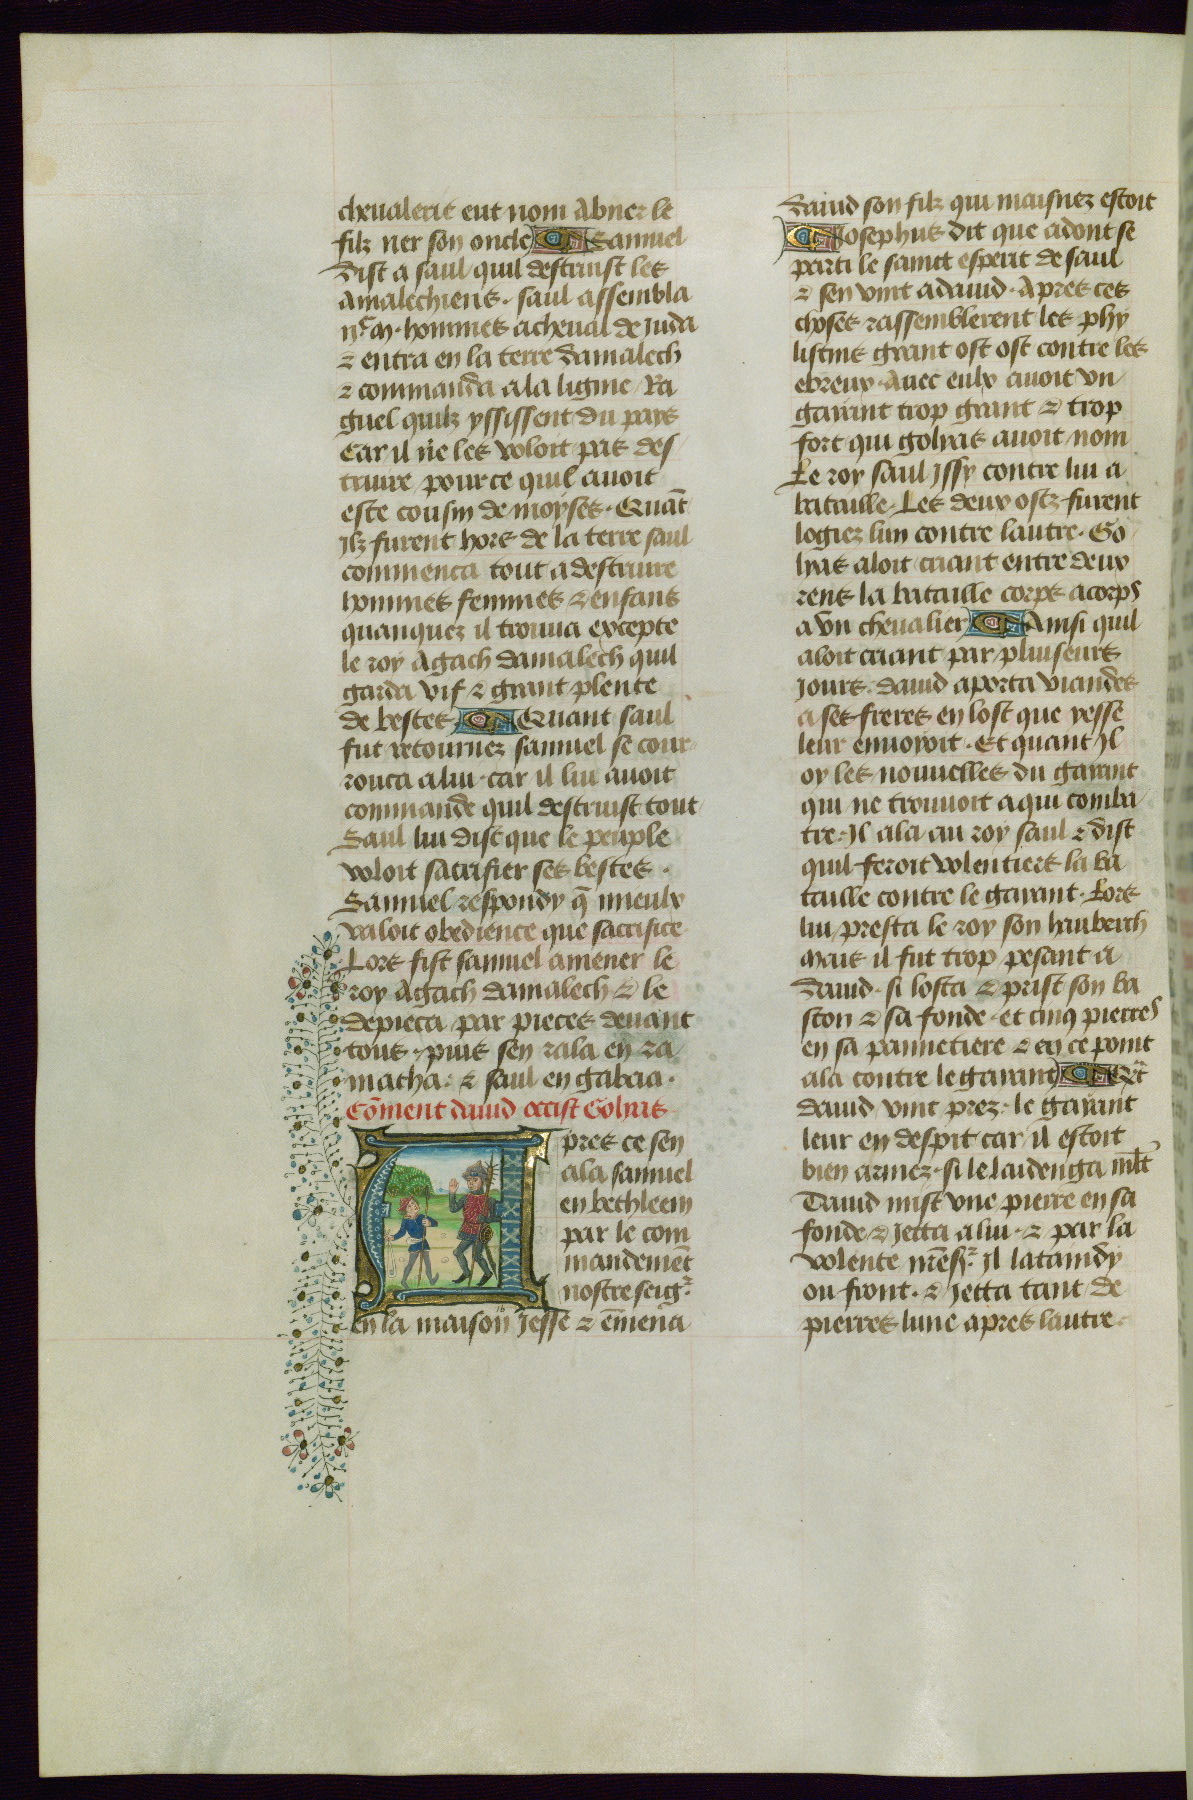 cheualerie eut nom Abner le
filz ner son oncle Samuel
dist a saul quil destruist les
amalechiens. saul assembla
hommes acheual de Juda
⁊ entra en la terre damalech
⁊ commanda a la lignie Ra
guel quilz yssissent du pays
Car il ne les voloit pas des
truire pource quil auoit
este cousin de moyses. Quãt
Ilz furent hors de la terre saul
commenca tout a destruire
hommes femmes ⁊ enfans
quanquez il trouua excepte
le roy Agach damalech quil
garda vif ⁊ grant plente
de bestes Quant saul
fut retournez samuel se cour
rouca a lui. car il lui auoit
commande quil destruist tout
Saul lui dist que le peuple
voloit sacrifier ses bestes.
Samuel respondy q̃ mieulx
valoit obedience que sacrifice
Lors fist samuel amener le
roy Agach damalech ⁊ le
depieca par pieces deuant
tous. puis sen rala en ra
matha: ⁊ saul en gabaa.
Cõment dauid occist Golyas
Apres ce sen
ala samuel
en bethleem
par le com
mandemẽt
nostre seigr.
en la maison Jesse ⁊ ẽmena
dauid son filz qui maisnez estoit
Josephus dit que adont se
parti le sainct esperit de saul
⁊ sen vint a dauid. Apres ces
choses rassemblerent les phy
listins grant ost ost contre les
ebreux. Auec eulx auoit vn
gaiant trop grant ⁊ trop
fort qui golyas auoit nom
Le roy saul Issy contre lui a
bataille. Les deux ostz furent
logiez lun contre lautre. Go
lyas aloit criant entre deux
rens la bataille corps a corps
a vn cheualier Ainsi quil
aloit criant par pluiseurs
Jours. dauid aporta viandes
a ses freres en lost que yesse
leur enuoyoit. Et quant Il
oy les nouuelles du gayant
qui ne trouuoit a qui comba
tre. Il ala au roy saul ⁊ dist
quil feroit volentiers la ba
taille contre le gayant. Lors
lui presta le roy son hauberch
mais il fut trop pesant a
dauid. si losta ⁊ prist son ba
ston ⁊ sa fonde. et cinq pierres
en sa pannetiere ⁊ en ce point
ala contre le gayant Qñt
dauid vint prez. le gayant
leur en despit car il estoit
bien armez. si le laidenga mlt
Dauid mist vne pierre en sa
fonde ⁊ Jetta a lui. ⁊ par la
volente nrẽ sr. Il lataindy
ou front. ⁊ Jetta tant de
pierres lune apres lautre.